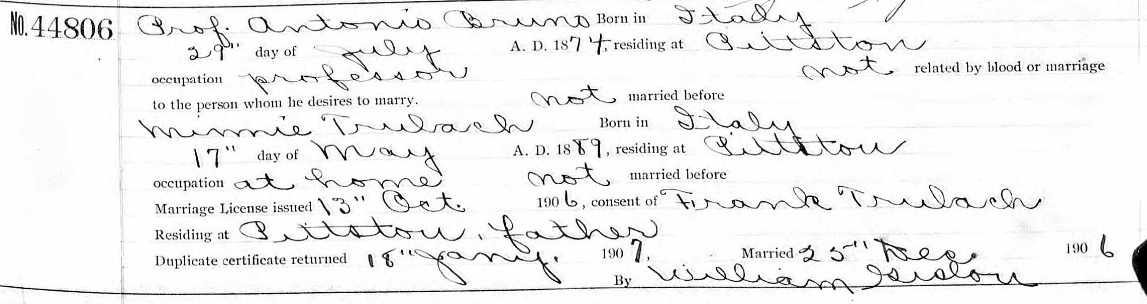 No. 44806 Prof. Antonio Bruno Born in Italy
29" day of July A. D. 1874, residing at Pittston
occupation professor not related by blood or marriage
to the person whom he desires to marry. not married before
Minnie Trubach Born in Italy
17" day of May A. D. 1889, residing at Pittston
occupation at home not married before
Marriage License issued 13" Oct. 1906, consent of Frank Trubach
Residing at Pittston, father
Duplicate certificate returned 18" Jany. 1907, Married 25" Dec. 1906
By William